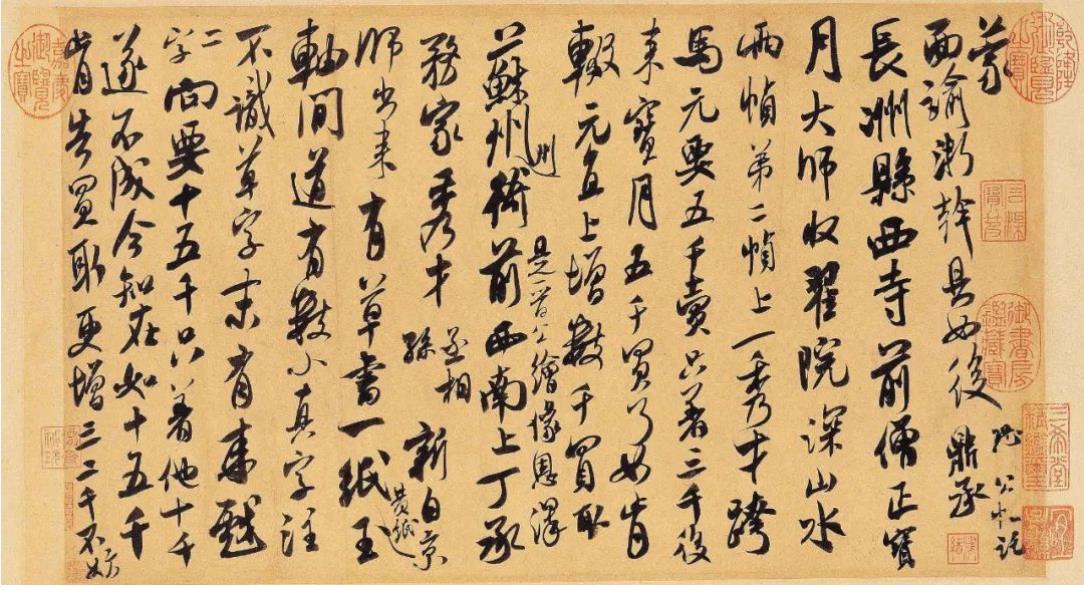 蒙
西諭浙幹具如後
鼎承
恐公忙
長洲縣西寺前僧正寶
月大師收翟院深山水
兩幀第二幀上一秀才跨
馬元要五千賣只著三千後
來寶月五千買了如肯
輟元直上增數千買取
是晉公繪像恩澤
蘇州州衙前西南上丁承
務家秀才
丞相
孫
新自京
師出來有草書一紙黃紙玉
軸間道有數小真字注
不識草字末有來戲
二字向要十五千只著他十千
遂不成今知在如十五千
肯告買取更增三二千不妨